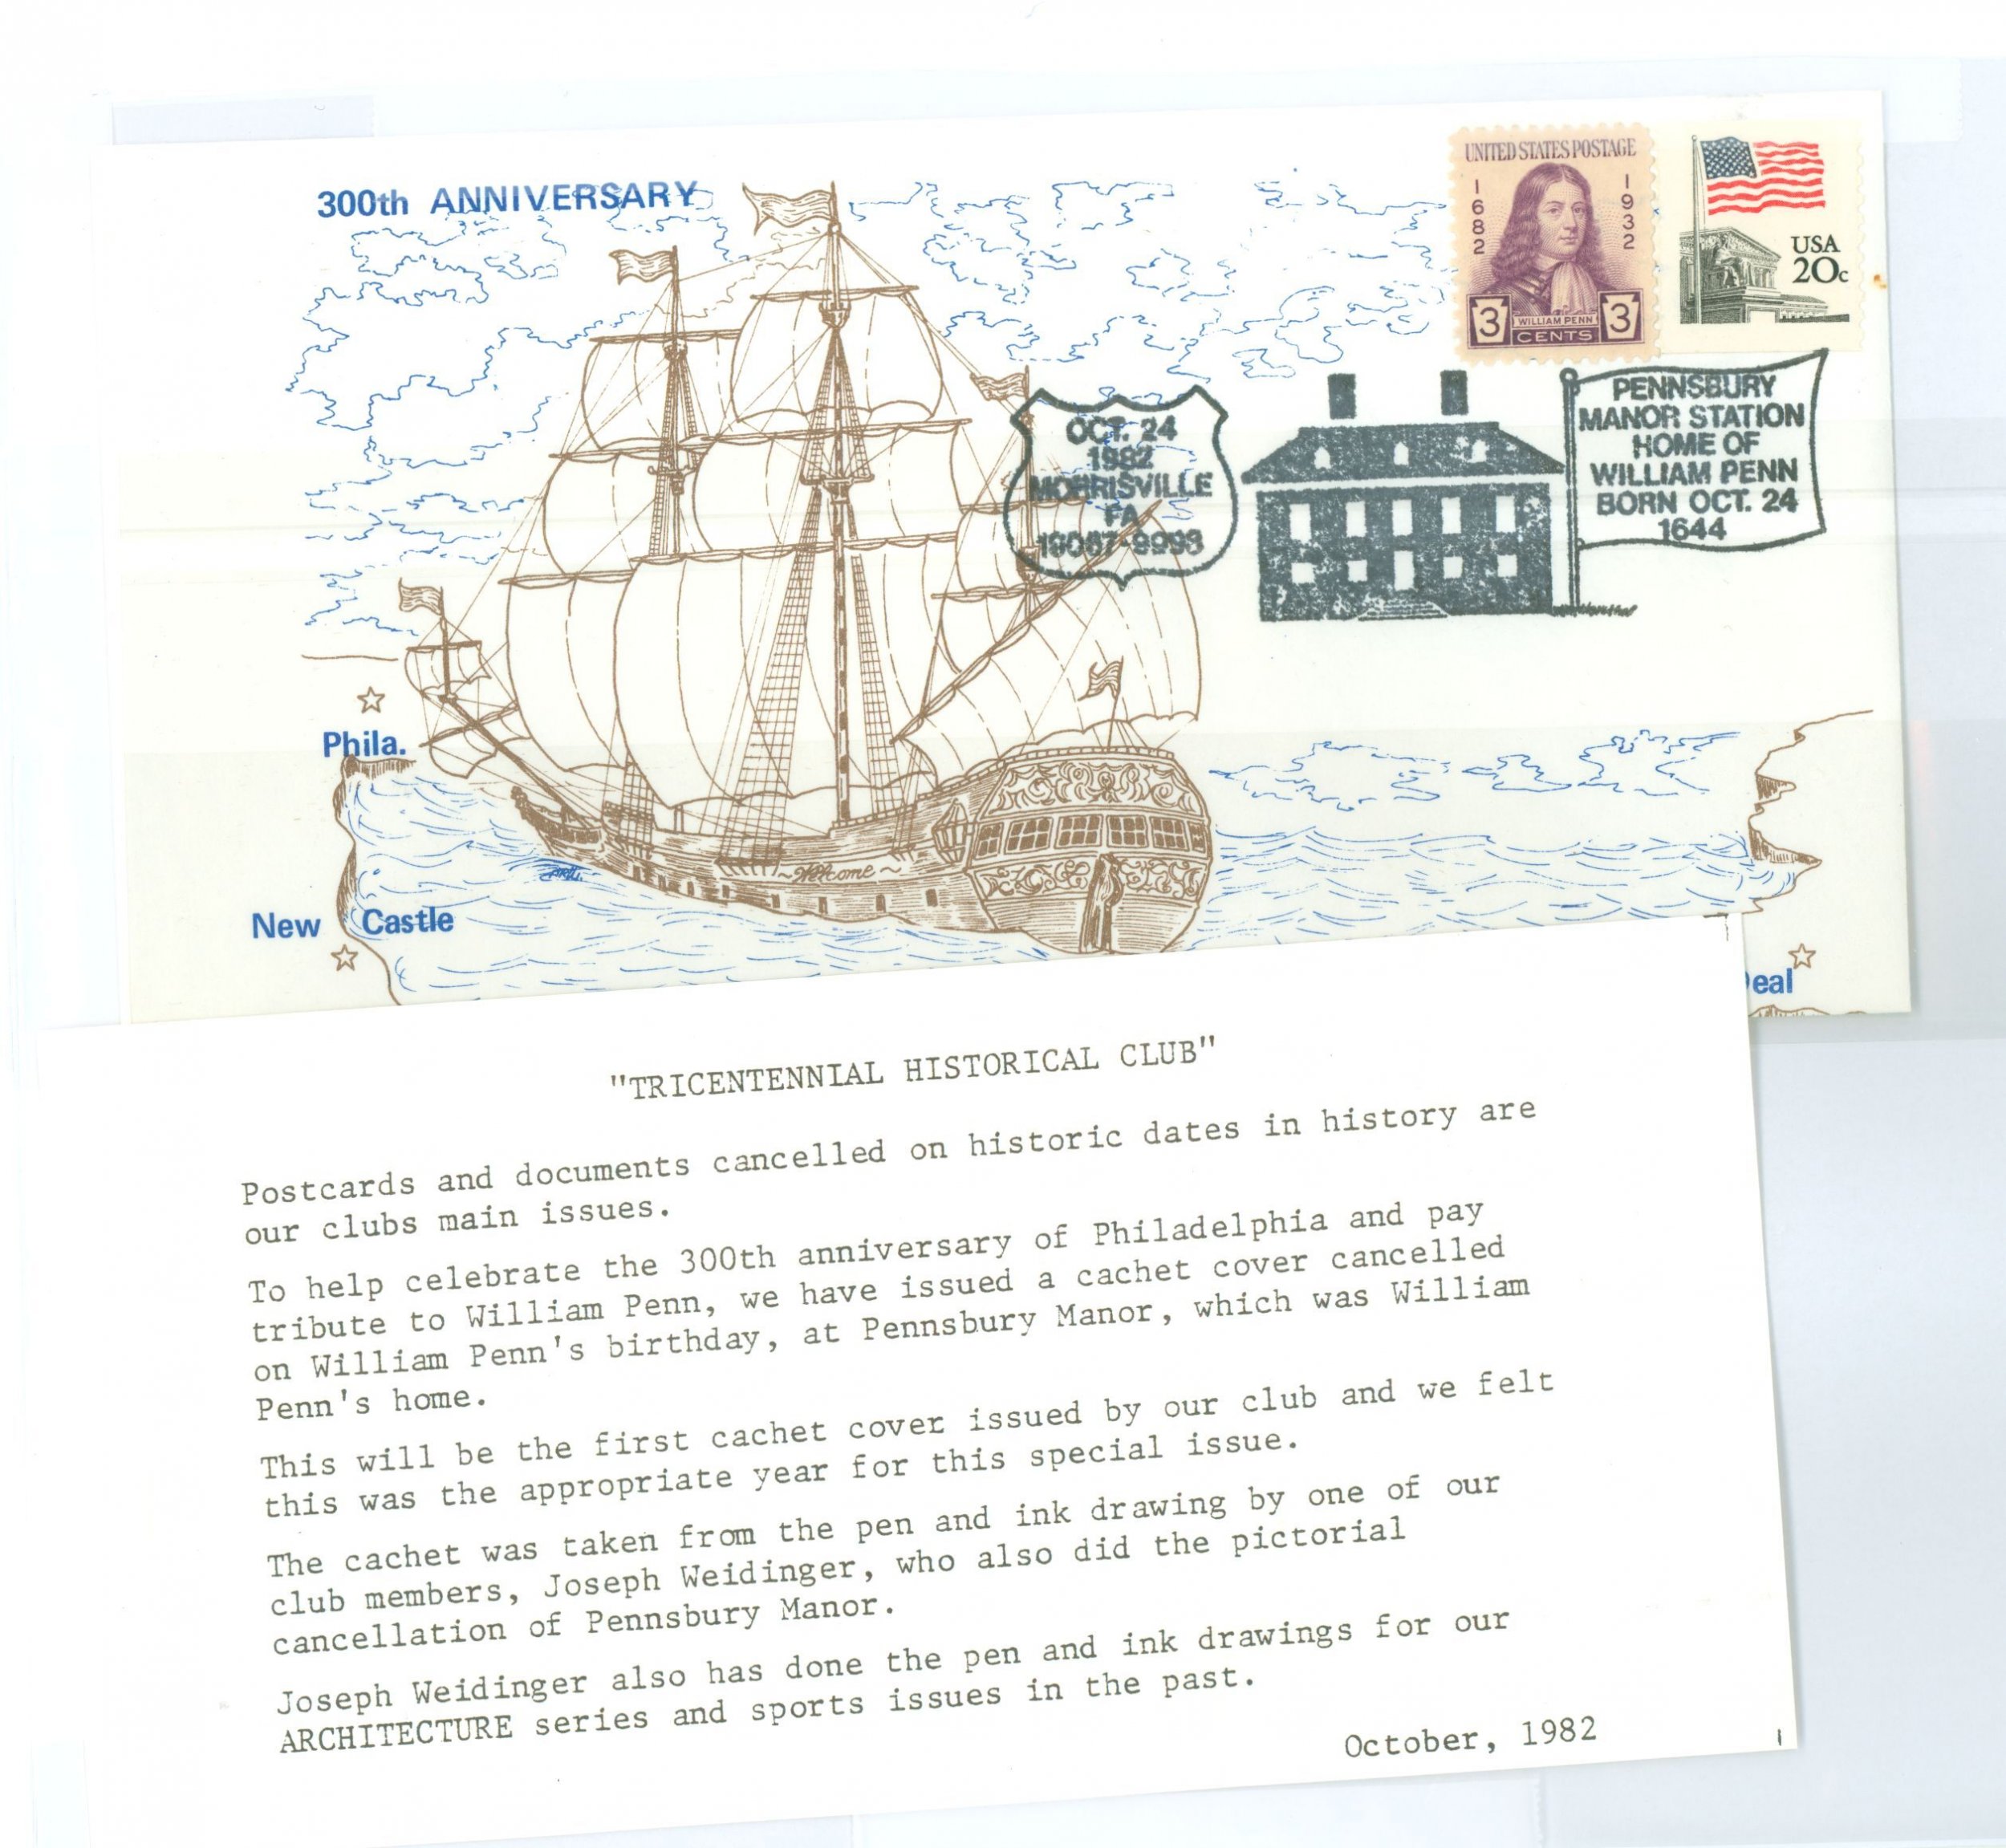 300th ANNIVERSARY
UNITED STATES POSTAGE
1682
1932
3
WILLIAM PENN
3
CENTS
USA
20c
OCT. 24
1982
MORRISVILLE
PA
19067-9998
PENNSBURY
MANOR STATION
HOME OF
WILLIAM PENN
BORN OCT. 24
1644
Phila.
~Welcome~
New Castle
Deal
"TRICENTENNIAL HISTORICAL CLUB"
Postcards and documents cancelled on historic dates in history are
our clubs main issues.
To help celebrate the 300th anniversary of Philadelphia and pay
tribute to William Penn, we have issued a cachet cover cancelled
on William Penn's birthday, at Pennsbury Manor, which was William
Penn's home.
This will be the first cachet cover issued by our club and we felt
this was the appropriate year for this special issue.
The cachet was taken from the pen and ink drawing by one of our
club members, Joseph Weidinger, who also did the pictorial
cancellation of Pennsbury Manor.
Joseph Weidinger also has done the pen and ink drawings for our
ARCHITECTURE series and sports issues in the past.
October, 1982